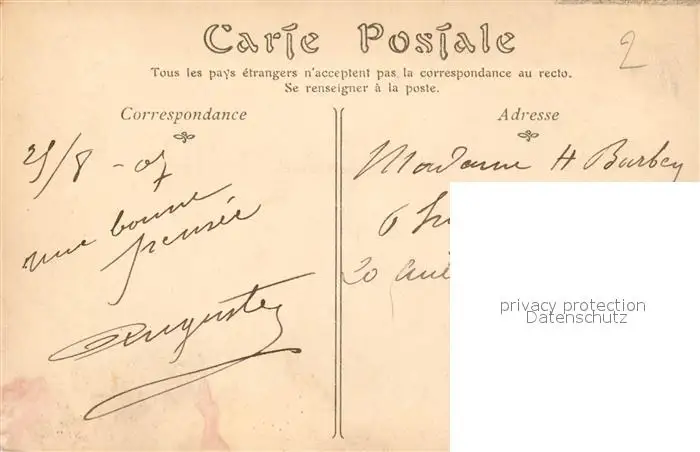 2
Carte Postale
Tous les pays étrangers n'acceptent pas la correspondance au recto.
Se renseigner à la poste.
Correspondance
25/8 - 07
une bonne
pensée
Auguste
Adresse
Madame H Barbey
6
20
privacy protection
Datenschutz